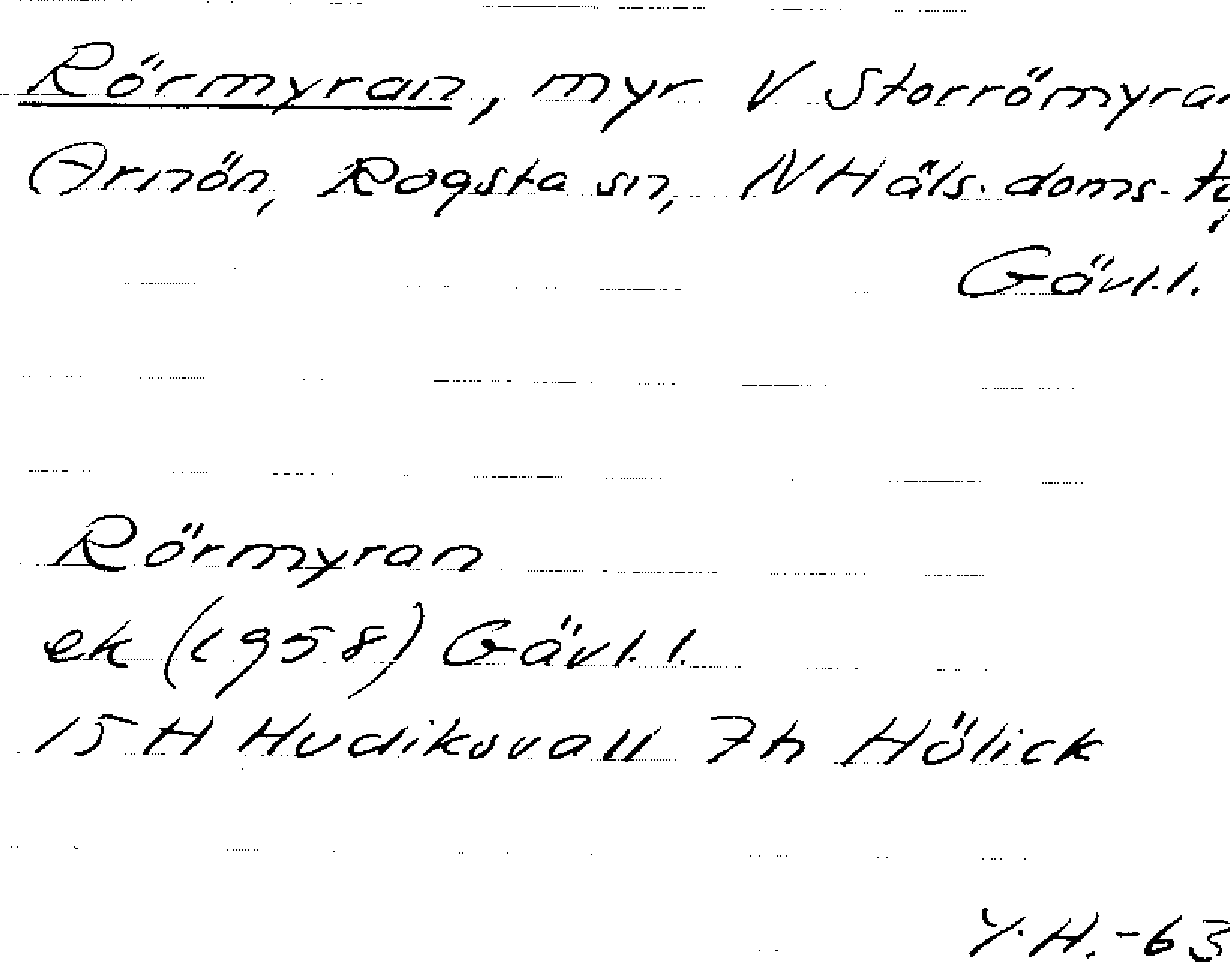 Rörmyran, myr V Storrömyran
Arnön, Rogsta sn, N Häls. doms.
Gävl.l.
Rörmyran
ek (1958) Gävl.l.
15H Hudiksvall 7h Hölick
Y.H.-63